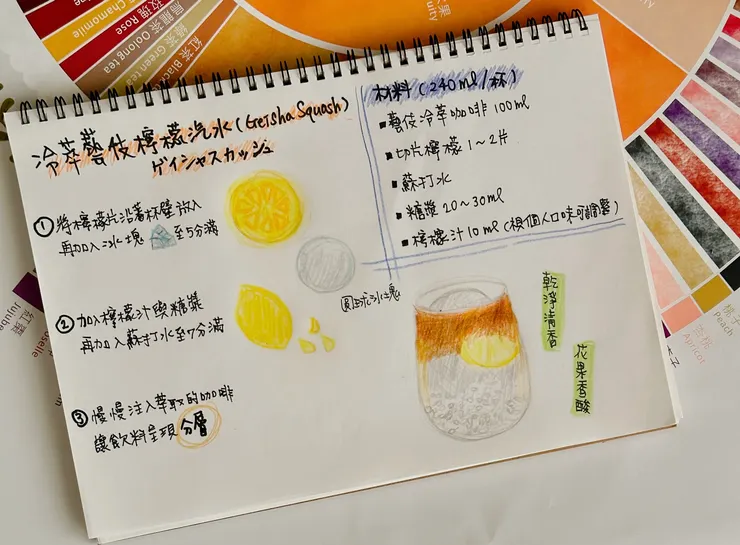 冷萃藝伎檸檬汽水 (Geisha Squash)
ゲイシャスカッシュ
① 將檸檬片沿著杯壁放入
再加入冰塊 至5分滿
② 加入檸檬汁與糖漿
再加入蘇打水至7分滿
③ 慢慢注入萃取的咖啡
讓飲料呈現分層
材料 (240ml/杯)
■藝伎冷萃咖啡 100ml
■切片檸檬 1~2片
■蘇打水
■糖漿 20~30ml
■檸檬汁 10ml (視個人口味可調整)
圓球冰塊
乾淨清香
花果香酸
玫瑰 Rose
Chamomile
烏龍茶 Oolong tea
綠茶 Green tea
紅茶 Blac
Jujube
紅棗
selle
Peach
桃子
Apricot